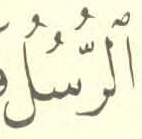 ٱلرُّسُلُ